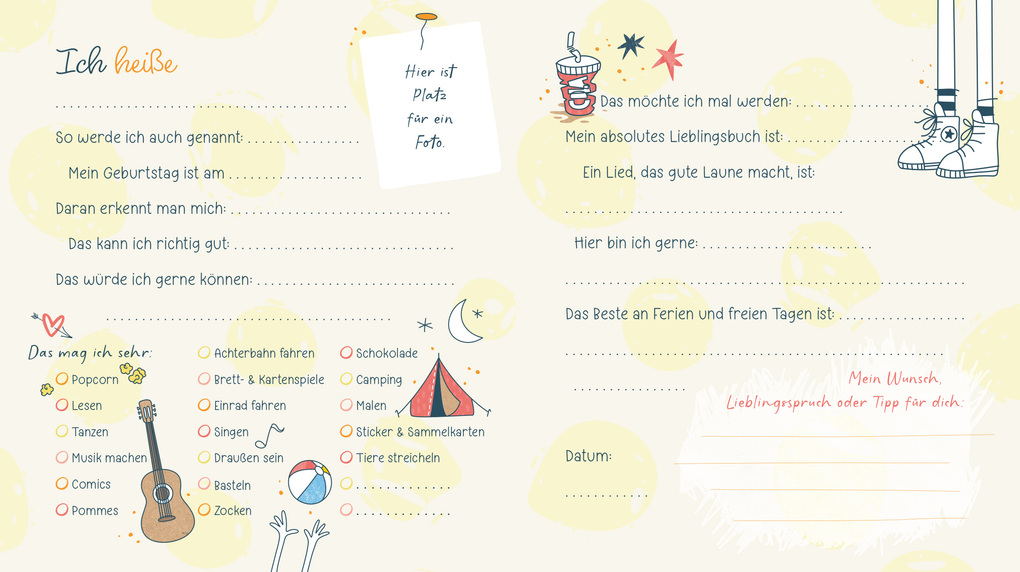 Ich heiße
Hier ist
Platz
für ein
Foto.
So werde ich auch genannt:
Mein Geburtstag ist am
Daran erkennt man mich:
Das kann ich richtig gut:
Das würde ich gerne können:
Das mag ich sehr:
Popcorn
Lesen
Tanzen
Musik machen
Comics
Pommes
Achterbahn fahren
Brett- & Kartenspiele
Einrad fahren
Singen
Draußen sein
Basteln
Zocken
Schokolade
Camping
Malen
Sticker & Sammelkarten
Tiere streicheln
Das möchte ich mal werden:
Mein absolutes Lieblingsbuch ist:
Ein Lied, das gute Laune macht, ist:
Hier bin ich gerne:
Das Beste an Ferien und freien Tagen ist:
Mein Wunsch,
Lieblingsspruch oder Tipp für dich:
Datum: